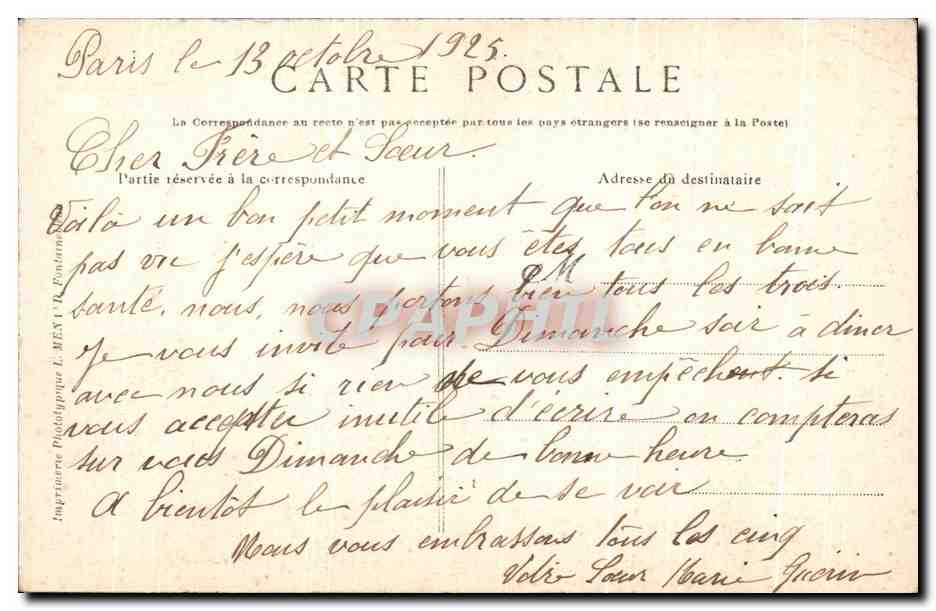 Paris le 13 octobre 1925.
CARTE POSTALE
La Correspondance au recto n'est pas acceptée par tous les pays étrangers (se renseigner à la Poste)
Cher Frère et Sœur.
Partie réservée à la correspondance
Adresse du destinataire
Voilà un bon petit moment que l'on ne sait
pas vu j'espère que vous êtes tous en bonne
santé. nous, nous portons bien tous les trois.
Je vous invite pour Dimanche soir à diner
avec nous si rien ne vous empêchent. si
vous accepter inutile d'écrire on compteras
sur vous Dimanche de bonne heure
A bientôt le plaisir de se voir
Nous vous embrassons tous les cinq
Votre Sœur Marie Guérin
Imprimerie Phototypique L. MENARD Fontaine
CPAPHIL